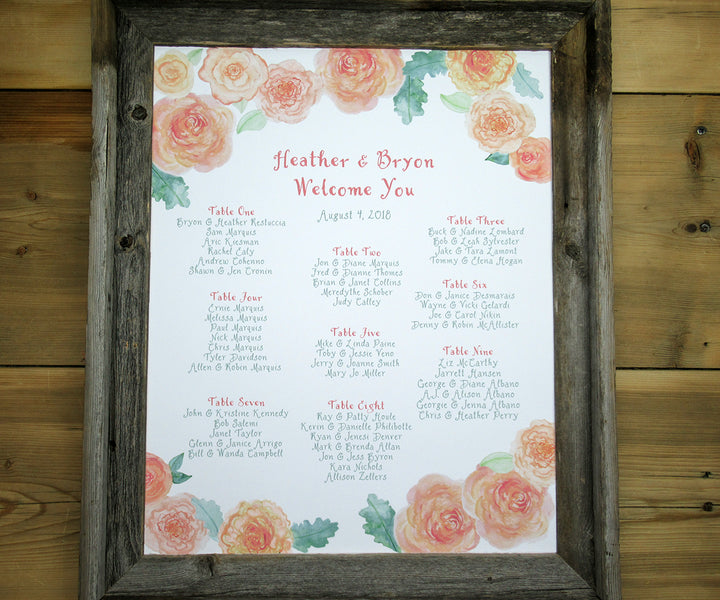 Heather & Bryon
Welcome You
August 4, 2018
Table One
Bryon & Heather Restuccia
Sam Marquis
Aric Kiesman
Rachel Ealy
Andrew Cohenno
Shawn & Jen Cronin
Table Two
Jon & Diane Marquis
Fred & Dianne Thomes
Brian & Janet Collins
Meredythe Schober
Judy Calley
Table Three
Buck & Nadine Lombard
Bob & Leah Sylvester
Jake & Tara Lamont
Tommy & Elena Hogan
Table Four
Ernie Marquis
Melissa Marquis
Paul Marquis
Nick Marquis
Chris Marquis
Tyler Davidson
Allen & Robin Marquis
Table Five
Mike & Linda Paine
Toby & Jessie Veno
Jerry & Joanne Smith
Mary Jo Miller
Table Six
Don & Janice Desmarais
Wayne & Vicki Gelardi
Joe & Carol Nikin
Denny & Robin McAllister
Table Seven
John & Kristine Kennedy
Bob Salemi
Janet Taylor
Glenn & Janice Arrigo
Bill & Wanda Campbell
Table Eight
Ray & Patty Houle
Kerin & Danielle Philibotte
Ryan & Jenesi Denver
Mark & Brenda Allan
Jon & Jess Byron
Kara Nichols
Allison Zellers
Table Nine
Liz McCarthy
Jarrett Hansen
George & Diane Albano
A.J. & Alison Albano
Georgie & Jenna Albano
Chris & Heather Perry